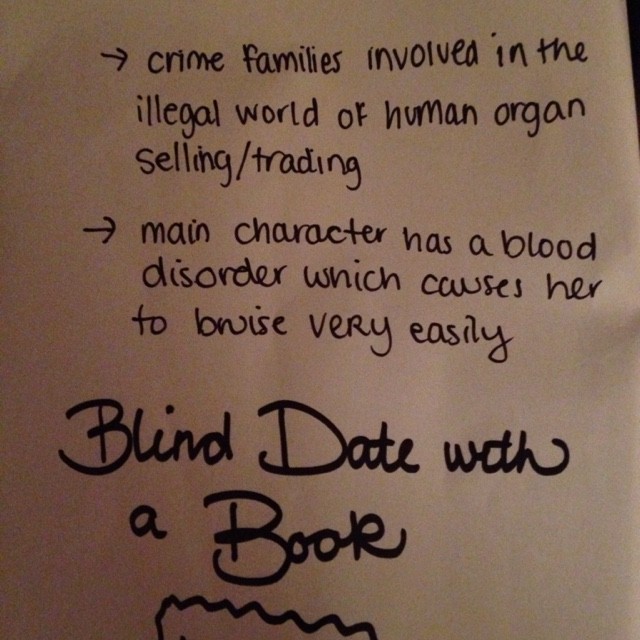 → crime families involved in the
illegal world of human organ
selling/trading
→ main character has a blood
disorder which causes her
to bruise very easily
Blind Date with
a Book